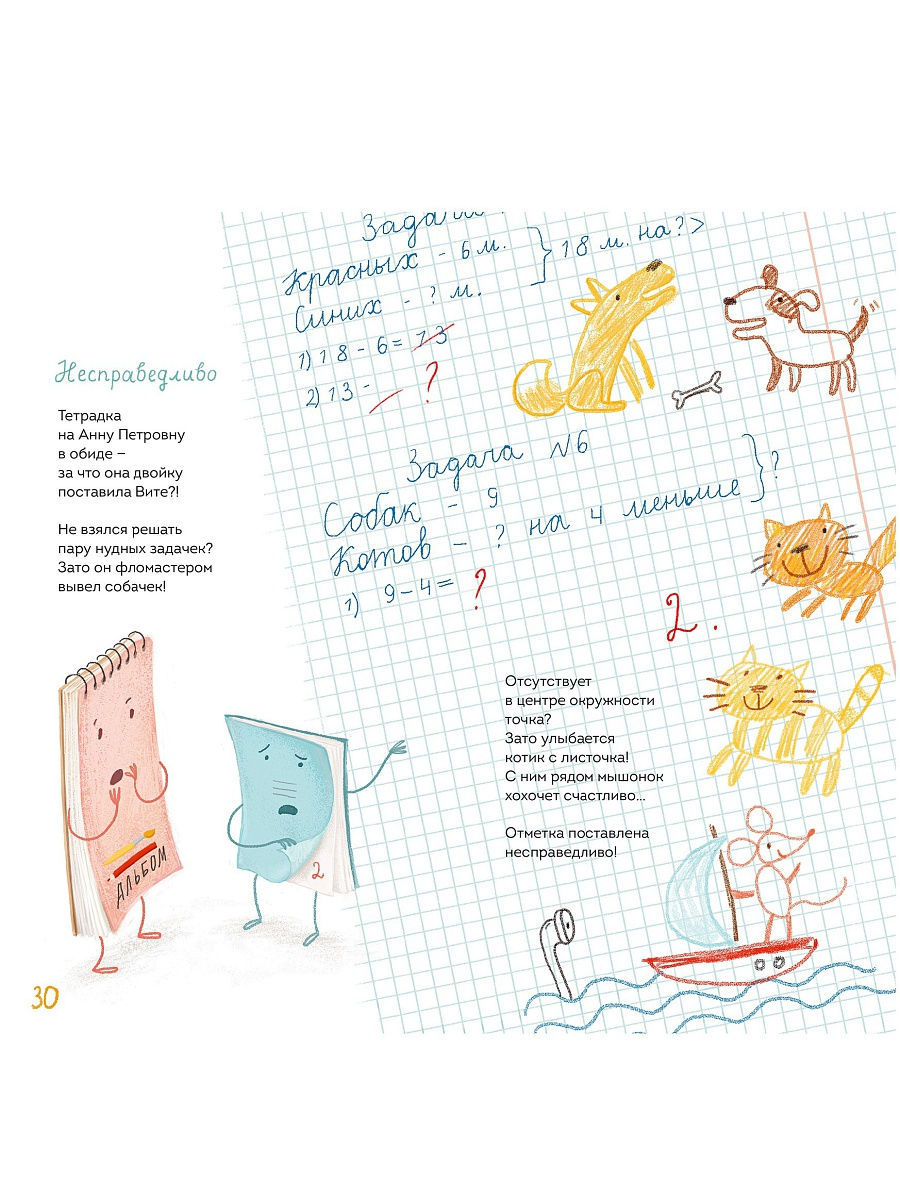 Задача
Красных - 6 м.
Синих - ? м.
} 18 м. на ? >
1) 18 - 6 = 13
2) 13 - ?
Несправедливо
Тетрадка
на Анну Петровну
в обиде –
за что она двойку
поставила Вите?!
Не взялся решать
пару нудных задачек?
Зато он фломастером
вывел собачек!
Задача №6
Собак - 9
Котов - ? на 4 меньше } ?
1) 9 - 4 = ?
2.
Отсутствует
в центре окружности
точка?
Зато улыбается
котик с листочка!
С ним рядом мышонок
хохочет счастливо...
Отметка поставлена
несправедливо!
АЛЬБОМ
2
30